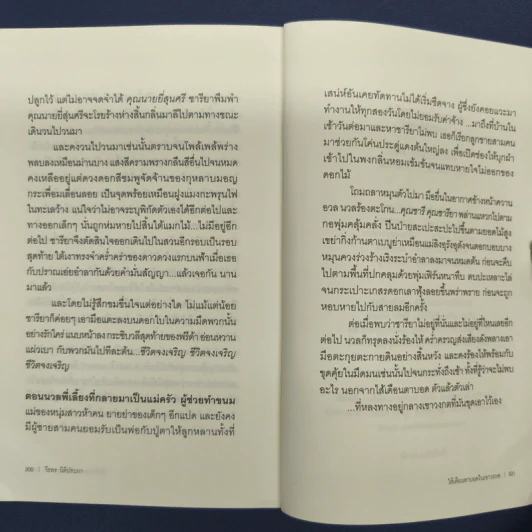 ปลูกไว้ แต่ไม่อาจจดจำได้ คุณนายยี่สุ่นศรี ชารียาพึมพำ
คุณนายยี่สุ่นศรีจะโรยร้างห่างสิ้นกลิ่นมาลีไปตามทางขณะ
เดินวนไปวนมา
และคงวนไปวนมาเช่นนั้นตราบจนโพล้เพล้พร่าง
พลบลงเหมือนม่านบาง แสงสีครามพรางกลืนสีอื่นไปจนหมด
คงเหลืออยู่แต่ดวงดอกสีชมพูจัดจ้านของกุหลาบมอญ
กระเพื่อมเลื่อนลอย เป็นจุดพร้อยเหมือนฝูงแมงกะพรุนไฟ
ในทะเลร้าง แน่ใจว่าไม่อาจระบุพิกัดตัวเองได้อีกต่อไปและ
ทางออกเล็กๆ นั้นถูกห่มหายไปสิ้นใต้แมกไม้...ไม่มีอยู่อีก
ต่อไป ชารียาจึงตัดสินใจออกเดินไปในสวนอีกรอบเป็นรอบ
สุดท้าย ใต้เงาทรงจำคร่ำคร่าของดาวดวงแรกบนฟ้าเมื่อเธอ
กับปราณเอ่ยอำลากันด้วยคำมั่นสัญญา...แล้วเจอกัน นาน
มาแล้ว
และโดยไม่รู้สึกขมขื่นใจแต่อย่างใด ไม่แม้แต่น้อย
ชารียาก็ค่อยๆ เอามือแตะลงบนดอกใบในความมืดพวกนั้น
อย่างรักใคร่ แนบหน้าลง กระซิบวลีสุดท้ายของพรีด้า อ่อนหวาน
แผ่วเบา กับพวกมันไปทีละต้น...ชีวิตจงเจริญ ชีวิตจงเจริญ
ชีวิตจงเจริญ
ตอนนวลพี่เลี้ยงที่กลายมาเป็นแม่ครัว ผู้ช่วยทำขนม
แม่ของหนุ่มสาวห้าคน ยายย่าของเด็กๆ อีกแปด และยังคง
มีผู้ชายสามคนยอมรับเป็นพ่อกับปู่ตาให้ลูกหลานทั้งที่
300 | วีรพร นิติประภา
เสน่ห์อันเคยทัดทานไม่ได้เริ่มซีดจาง ผู้ซึ่งยังคอยแวะมา
ทำงานให้ทุกสองวันโดยไม่ยอมรับค่าจ้าง ...มาถึงที่บ้านใน
เช้าวันต่อมาและหาชารียาไม่พบ เธอก็เรียกลูกชายสามคน
มาช่วยกันโค่นประตูแดงต้นใหญ่ลง เพื่อเปิดช่องให้บุกฝ่า
เข้าไปในพงกลิ่นหอมเข้มข้นจนแทบหายใจไม่ออกของ
ดอกไม้
โถมถลาหมุนตัวไปมา มือยื่นในอากาศข้างหน้าควาน
อวล นวลร้องตะโกน...คุณชารี คุณชารียา พล่านแหวกไปตาม
กอพุ่มคลุ้มคลั่ง ปีนป่ายสะเปะสะปะไปบนชั้นตามยอดไม้สูง
เขย่ากิ่งก้านตาเบบูย่าเหมือนแมลงอิรุงตุงดังจนดอกบอบบาง
หมุนควงร่วงร้างเริงระบำอำลาลงมาจนหมดต้น ก่อนจะคืบ
ไปตามพื้นที่ปกคลุมด้วยพุ่มเฟิร์นหนาทึบ ตบปะเหลาะไล่
จนกระเปาะเกสรดอกเลาฟุ้งลอยขึ้นพร่าพราย ก่อนจะถูก
หอบหายไปกับสายลมอีกครั้ง
ต่อเมื่อพบว่าชารียาไม่อยู่ที่นั่นและไม่อยู่ที่ไหนเลยอีก
ต่อไป นวลก็ทรุดลงนั่งร้องไห้ คร่ำครวญส่งเสียงดังพลางเอา
มือตะกุยตะกายดินอย่างสิ้นหวัง และคงร้องไห้พร้อมกับ
ขุดคุ้ยในมืดมนเช่นนั้นไปจนกระทั่งถึงเช้า ทั้งที่รู้ว่าจะไม่พบ
อะไร นอกจากไส้เดือนตาบอด ตัวแล้วตัวเล่า
...ที่หลงทางอยู่กลางเขาวงกตที่มันขุดเอาไว้เอง
ไส้เดือนตาบอดในเขาวงกต | 301